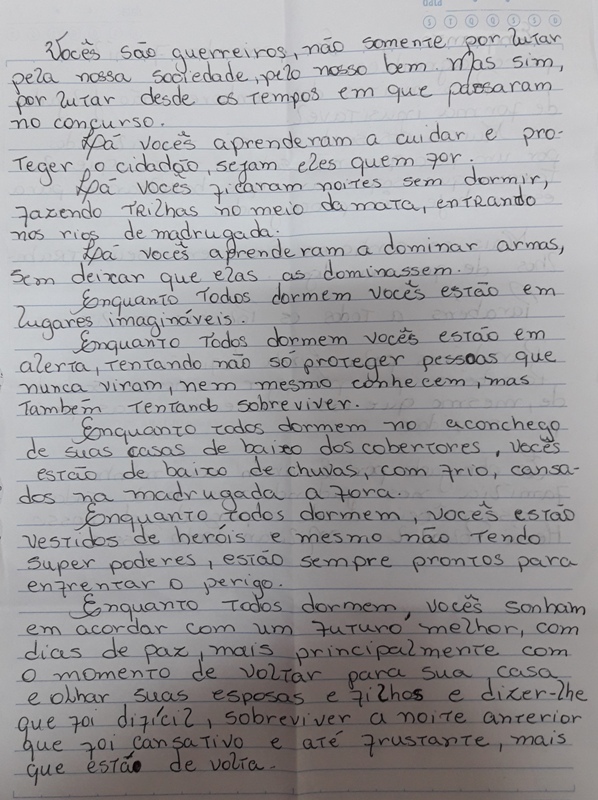 Vocês são guerreiros, não somente por lutar
pela nossa sociedade, pelo nosso bem mas sim,
por lutar desde os tempos em que passaram
no concurso.
Lá vocês aprenderam a cuidar e pro-
teger o cidadão, sejam eles quem for.
Lá vocês ficaram noites sem dormir,
fazendo trilhas no meio da mata, entrando
nos rios de madrugada.
Lá vocês aprenderam a dominar armas,
sem deixar que elas as dominassem.
Enquanto todos dormem vocês estão em
lugares imagináveis.
Enquanto todos dormem vocês estão em
alerta, tentando não só proteger pessoas que
nunca viram, nem mesmo conhecem, mas
também tentando sobreviver.
Enquanto todos dormem no aconchego
de suas casas de baixo dos cobertores, vocês
estão de baixo de chuvas, com frio, cansa-
dos na madrugada a fora.
Enquanto todos dormem, vocês estão
vestidos de heróis e mesmo não tendo
super poderes, estão sempre prontos para
enfrentar o perigo.
Enquanto todos dormem, vocês sonham
em acordar com um futuro melhor, com
dias de paz, mais principalmente com
o momento de voltar para sua casa
e olhar suas esposas e filhos e dizer-lhe
que foi difícil, sobreviver a noite anterior
que foi cansativo e até frustante, mais
que estão de volta.